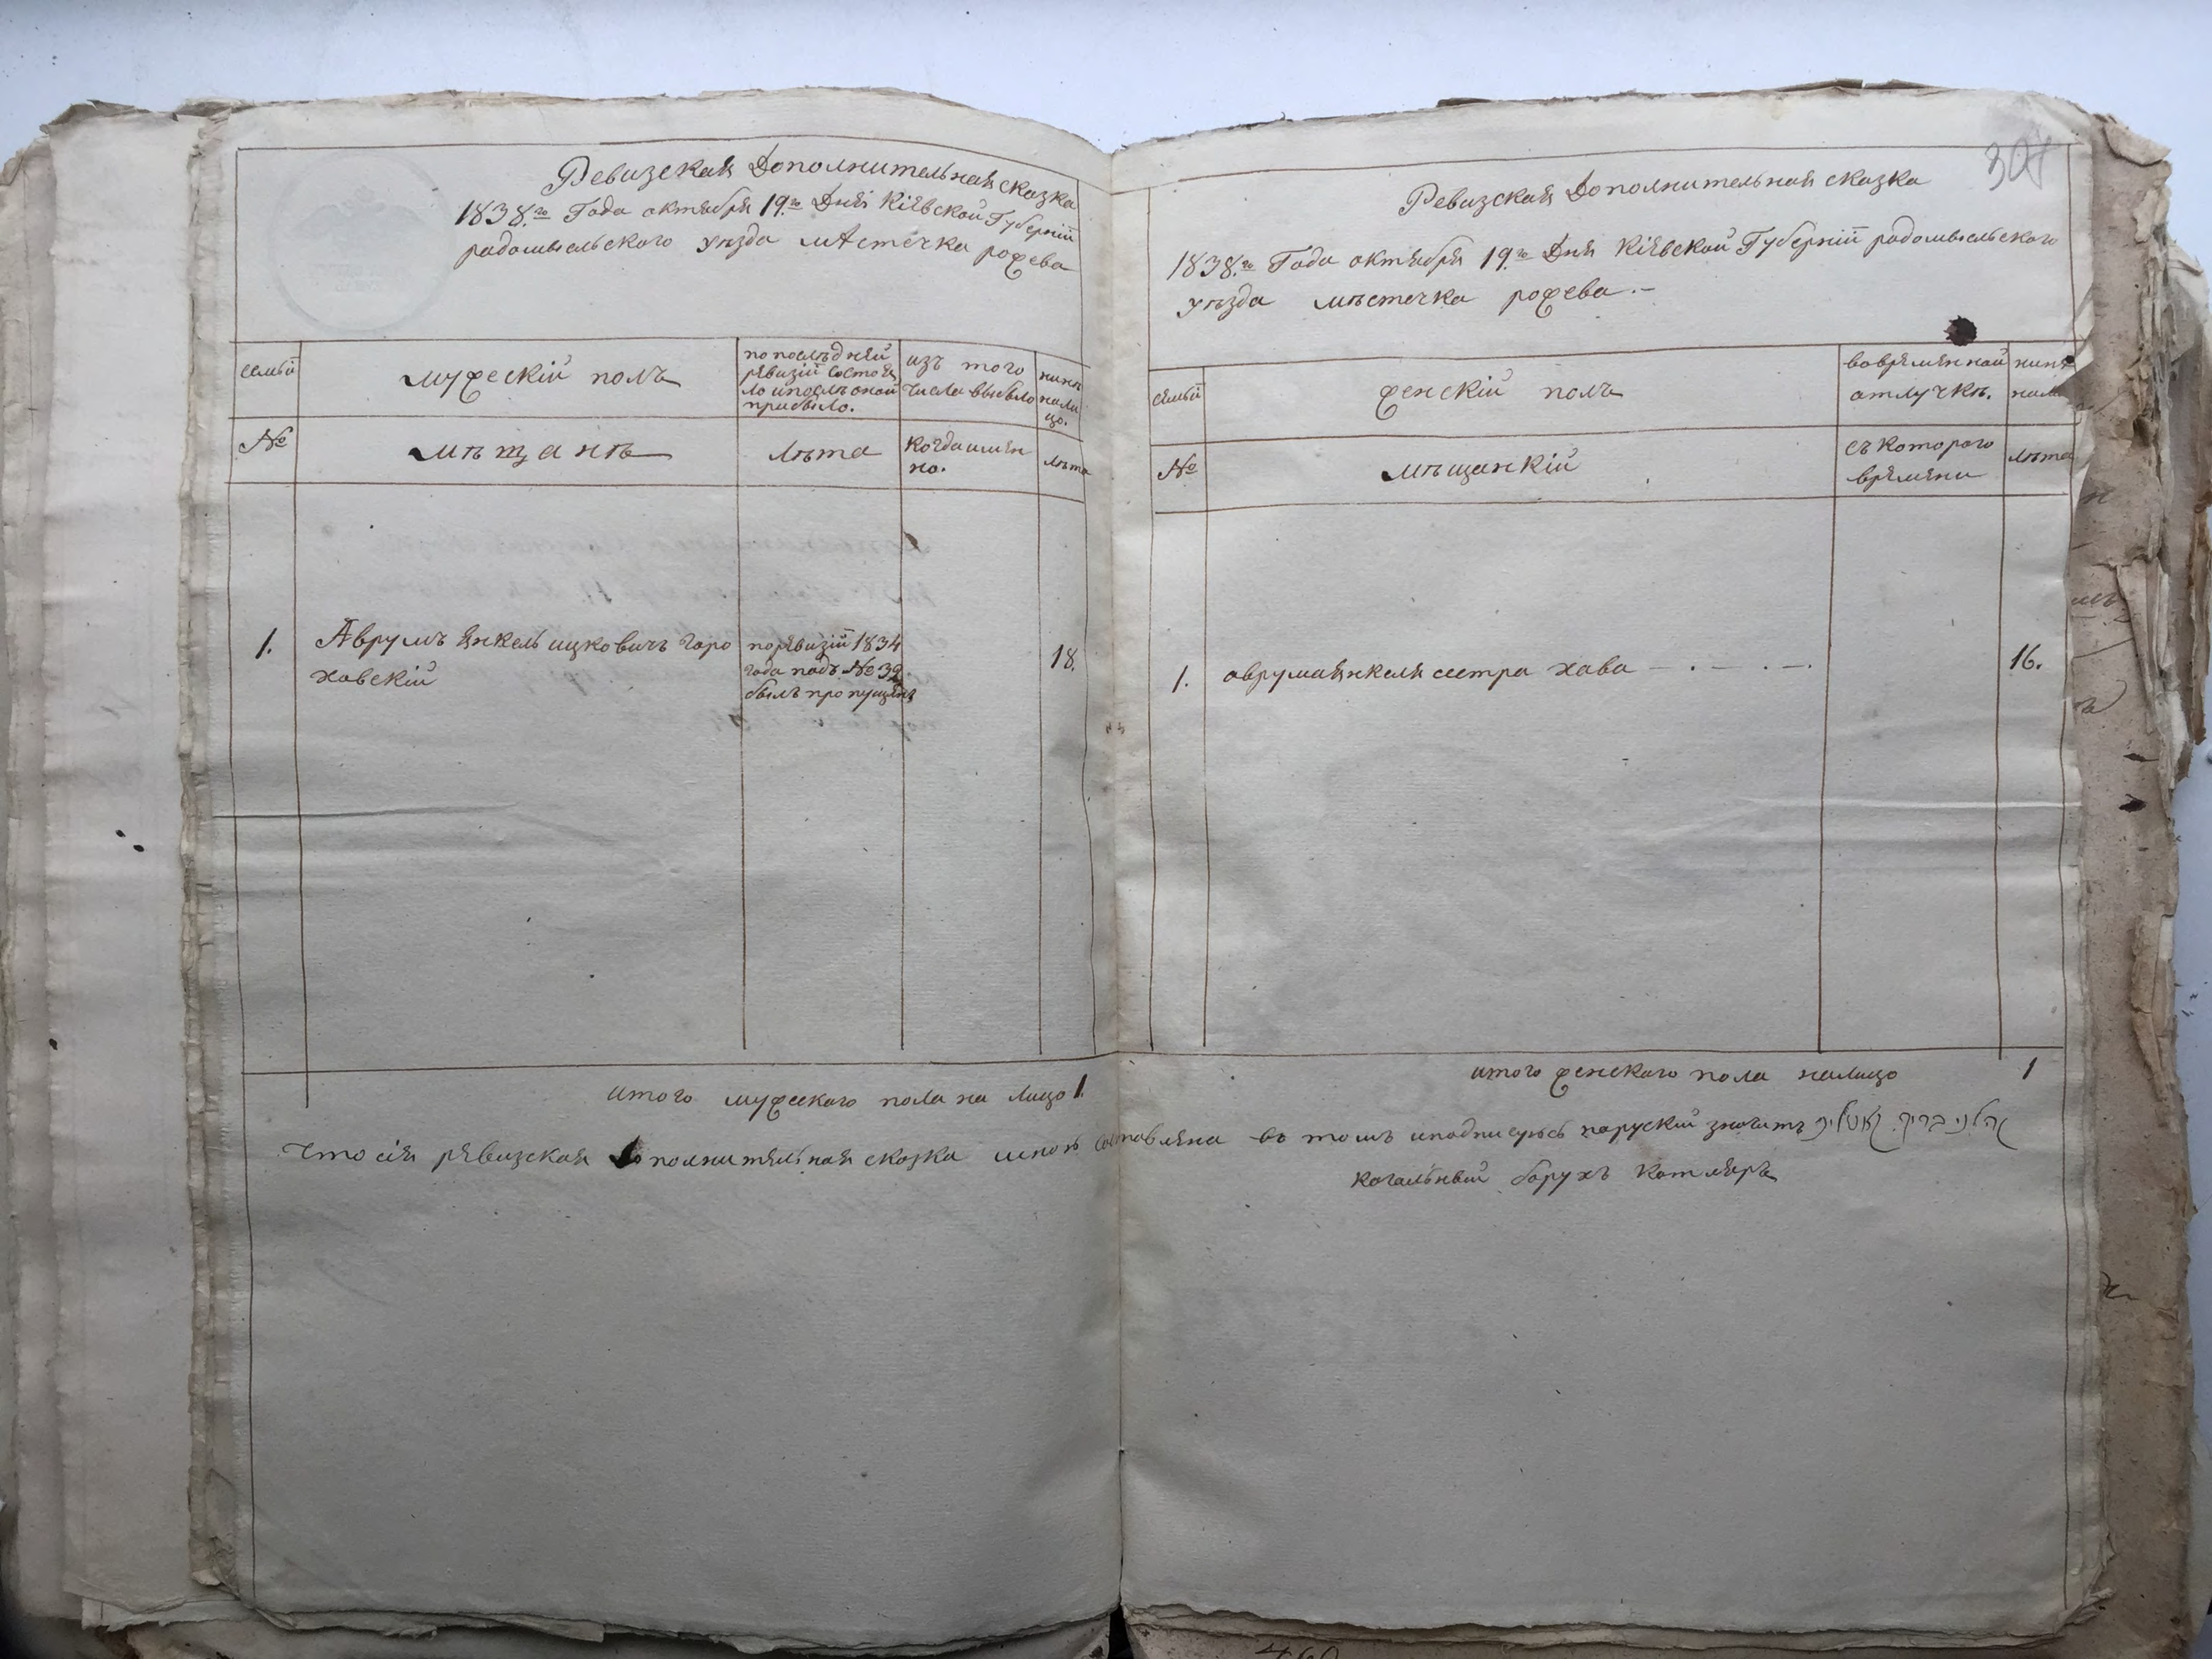 Ревизская Дополнительная сказка
1838.го Года октября 19.го Дня Кіевской Губерніи
радомысльского уѣзда мѣстечка рожева
семьи
мужескій полъ
по послѣдней
ревизіи состоя
ло и послѣ оной
прибыло.
изъ того
числа выбыло
нынѣ
нали
цо.
№
мѣщанѣ
лѣта
когда имян
но.
лѣта
1.
Аврумъ Янкель ицковичъ горо
ховскій
по ревизіи 1834
года подъ № 39
былъ пропущенъ
18.
итого мужеского пола на лицо 1.
307
Ревизская Дополнительная сказка
1838.го Года октября 19.го Дня Кіевской Губерніи радомысльского
уѣзда мѣстечка рожева.-
семьи
женскій полъ
во времянной
отлучкѣ.
нынѣ
№
мѣщанкій
съ которого
времяни
лѣта
1.
аврума янкеля сестра хава — . — . —.
16.
итого женского пола налицо 1
Что сія ревизская дополнительная сказка составлена въ томъ и подписуюсь поруский значитъ
Кагальный борухъ Котляръ